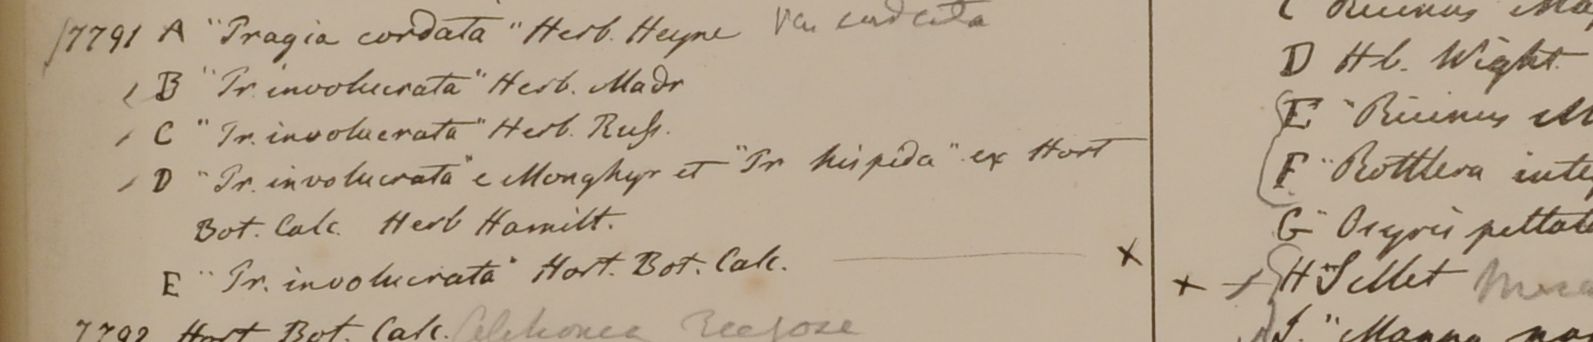 7791 A "Tragia cordata" Herb. Heyne Var cordata
B "Tr. involucrata" Herb. Madr
C "Tr. involucrata" Herb. Russ.
D "Tr. involucrata" e Monghyr et "Tr hispida" ex Hort
Bot. Calc. Herb Hamilt.
E "Tr. involucrata" Hort. Bot. Calc. x
7792 Hort Bot. Calc.
C Ricinus
D Hb. Wight
E "Ricinus
F "Rottlera
G Osyris
x H